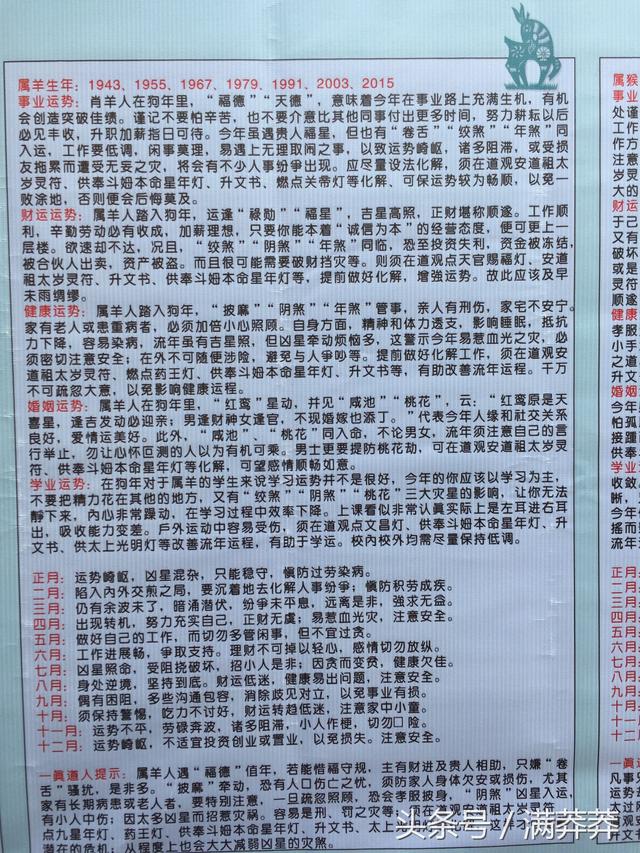 属羊生年：1943、1955、1967、1979、1991、2003、2015
事业运势：肖羊人在狗年里，“福德”“天德”，意味着今年在事业路上充满生机，有机
会创造突破佳绩。谨记不要怕辛苦，也不要介意比其他同事付出更多时间，努力耕耘以后
必见丰收，升职加薪指日可待。今年虽遇贵人福星，但也有“卷舌”“绞煞”“年煞”同
入运，工作要低调，闲事莫理，易遇上无理取闹之事，以致运势崎岖，诸多阻滞，或受损
友拖累而遭受无妄之灾，将会有不少人事纷争出现。应尽量设法化解，须在道观安道祖太
岁灵符、供奉斗姆本命星年灯、升文书、燃点关帝灯等化解、可保运势较为畅顺，以免一
败涂地，否则便会后悔莫及。
财运运势：属羊人踏入狗年，运逢“禄勋”“福星”，吉星高照，正财堪称顺遂。工作顺
利，辛勤劳动必有收成，加薪理想，只要你能本着“诚信为本”的经营态度，便可更上一
层楼。欲速却不达，况且，“绞煞”“阴煞”“年煞”同临，恐至投资失利，资金被冻结，
被合伙人出卖，资产被盗。而且恨可能需要破财挡灾等。则须在道观点天官赐福灯、安道
祖太岁灵符、升文书、供奉斗姆本命星年灯等，提前做好化解，增強运势。故此应该及早
未雨绸缪。
健康运势：属羊人踏入狗年，“披麻”“阴煞”“年煞”管事，亲人有刑伤，家宅不安宁。
家有老人或患重病者，必须加倍小心照顾。自身方面，精神和体力透支，影响睡眠，抵抗
力下降，容易染病，流年虽有吉星照，但凶星牵动烦恼多，这警示今年易惹血光之灾，必
须密切注意安全；在外不可随便涉险，避免与人争吵等。提前做好化解工作，须在道观安
道祖太岁灵符、燃点药王灯、供奉斗姆本命星年灯、升文书等，有助改善流年运程。千万
不可疏忽大意，以免影响健康运程。
婚姻运势：属羊人在狗年里，“红鸾”星动，并见“咸池”“桃花”，云：“红鸾原是天
喜星，逢吉发动必迎亲；男逢财神女逢官，不现婚嫁也添丁。”代表今年人缘和社交关系
良好，爱情运美好。此外，“咸池”、“桃花”同入命，不论男女，流年须注意自己的言
行举止，勿让心怀叵测的人以为有机可乘。男士更要提防桃花劫，可在道观安道祖太岁灵
符、供奉斗姆本命星年灯等化解，可望感情顺畅如意。
学业运势：在狗年对于属羊的学生来说学习运势并不是很好，今年的你应该以学习为主，
不要把精力花在其他的地方，又有“绞煞”“阴煞”“桃花”三大灾星的影响，让你无法
靜下来，內心非常躁动，在学习过程中效率下降。上课看似非常认真实际上是左耳进右耳
出，吸收能力变差。戶外运动中容易受伤，须在道观点文昌灯、供奉斗姆本命星年灯、升
文书、供太上光明灯等改善流年运程，有助于学运。校内校外均需尽量保持低调。
正月：运势崎岖，凶星混杂，只能稳守，慎防过劳染病。
二月：陷入內外交煎之局，要沉着地去化解人事纷争；慎防积劳成疾。
三月：仍有余波未了，暗涌潜伏，纷争未平息，远离是非，強求无益。
四月：出现转机，努力充实自己，正财无虞；易惹血光灾，注意安全。
五月：做好自己的工作，而切勿多管闲事，但不宜过贪。
六月：工作进展畅，争取支持。理财不可掉以轻心，感情切勿放纵。
七月：凶星照命，受阻挠破坏，招小人是非；因贪而变贫，健康欠佳。
八月：身处逆境，坚持到底。财运低迷，健康易出问题，注意安全。
九月：偶有困阻，多些沟通包容，消除歧见对立，以免事业有损。
十月：须保持警惕，吃力不讨好，财运转趋低迷，注意家中小童。
十一月：运势不平，劳碌奔波，诸多阻滞，小人作梗，切勿□险。
十二月：运势崎岖，不适宜投资创业或置业，以免损失。注意安全。
一真道人提示：属羊人遇“福德”值年，若能惜福守规，主有财进及贵人相助，只嫌“卷
舌”骚扰，是非多。“披麻”牵动，恐有人口伤亡之忧，须防家人身体欠安或损伤，尤其
家有长期病患或老人者，要特别注意，一旦疏忽照顾，恐会孝服披身，“阴煞”凶星入运，
有小人中伤；因太多凶星而招惹灾祸。容易是刑、罚之灾等；可在道观安道祖太岁灵符、
点九星年灯、药王灯、供奉斗姆本命星年灯、升文书
潜在的危机；从程度上也会大大减弱凶星的灾煞。
头条号／满莽莽